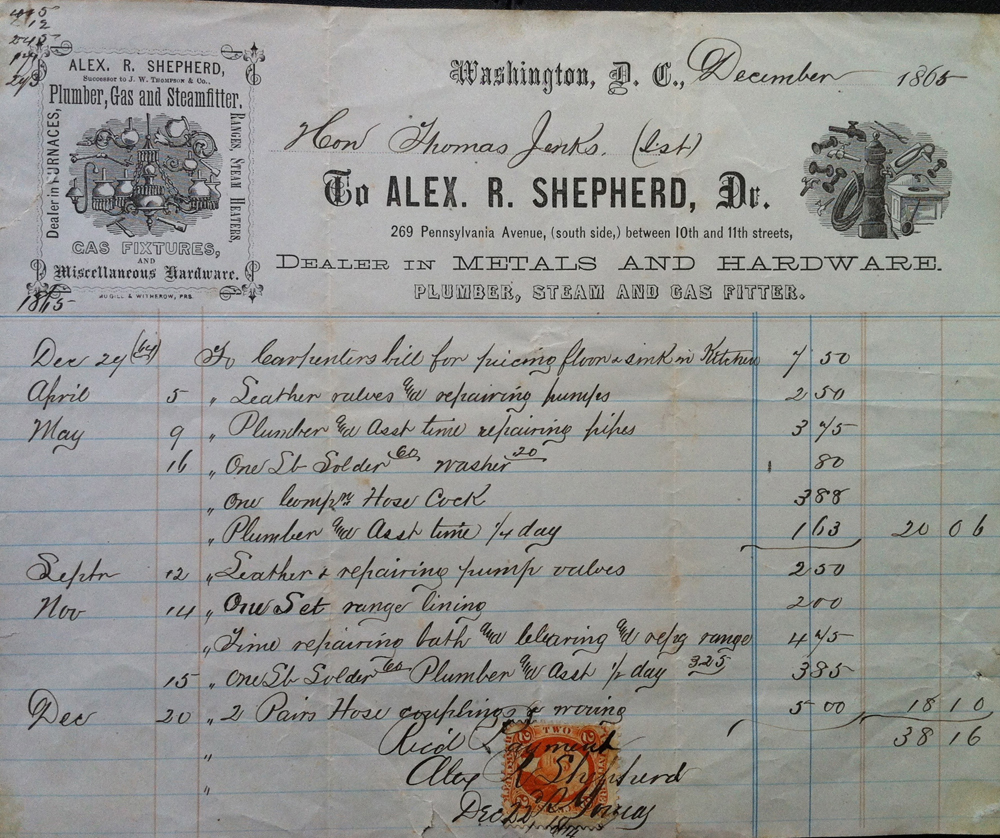 475
12
245
147
293
ALEX. R. SHEPHERD,
Successor to J. W. THOMPSON & Co.,
Plumber, Gas and Steamfitter.
Dealer in FURNACES,
RANGES, STEAM HEATERS,
GAS FIXTURES,
AND
Miscellaneous Hardware.
McGILL & WITHEROW, PRS.
Washington, D. C., December 1865
Hon Thomas Jenks. (1st)
To ALEX. R. SHEPHERD, Dr.
269 Pennsylvania Avenue, (south side,) between 10th and 11th streets,
DEALER IN METALS AND HARDWARE.
PLUMBER, STEAM AND GAS FITTER.
1865
Dec 29 (64) To Carpenters bill for piecing floor & sink in Kitchen 7 50
April 5 " Leather valves and repairing pumps 2 50
May 9 " Plumber and Asst time repairing pipes 3 75
16 " One Lb Solder 60 washer 20 80
" One Comp Hose Cock 3 88
" Plumber and Asst time 1/4 day 1 63 20 06
Septr 12 " Leather & repairing pump valves 2 50
Nov 14 " One Set range lining 2 00
" Time repairing bath and clearing and repg range 4 75
15 " One Lb Solder 60 Plumber and Asst 1/2 day 3 25 3 85
Dec 20 " 2 Pairs Hose couplings & wiring 5 00 18 10
" Rec'd Payment 38 16
" Alex R Shepherd
Dec 22
TWO